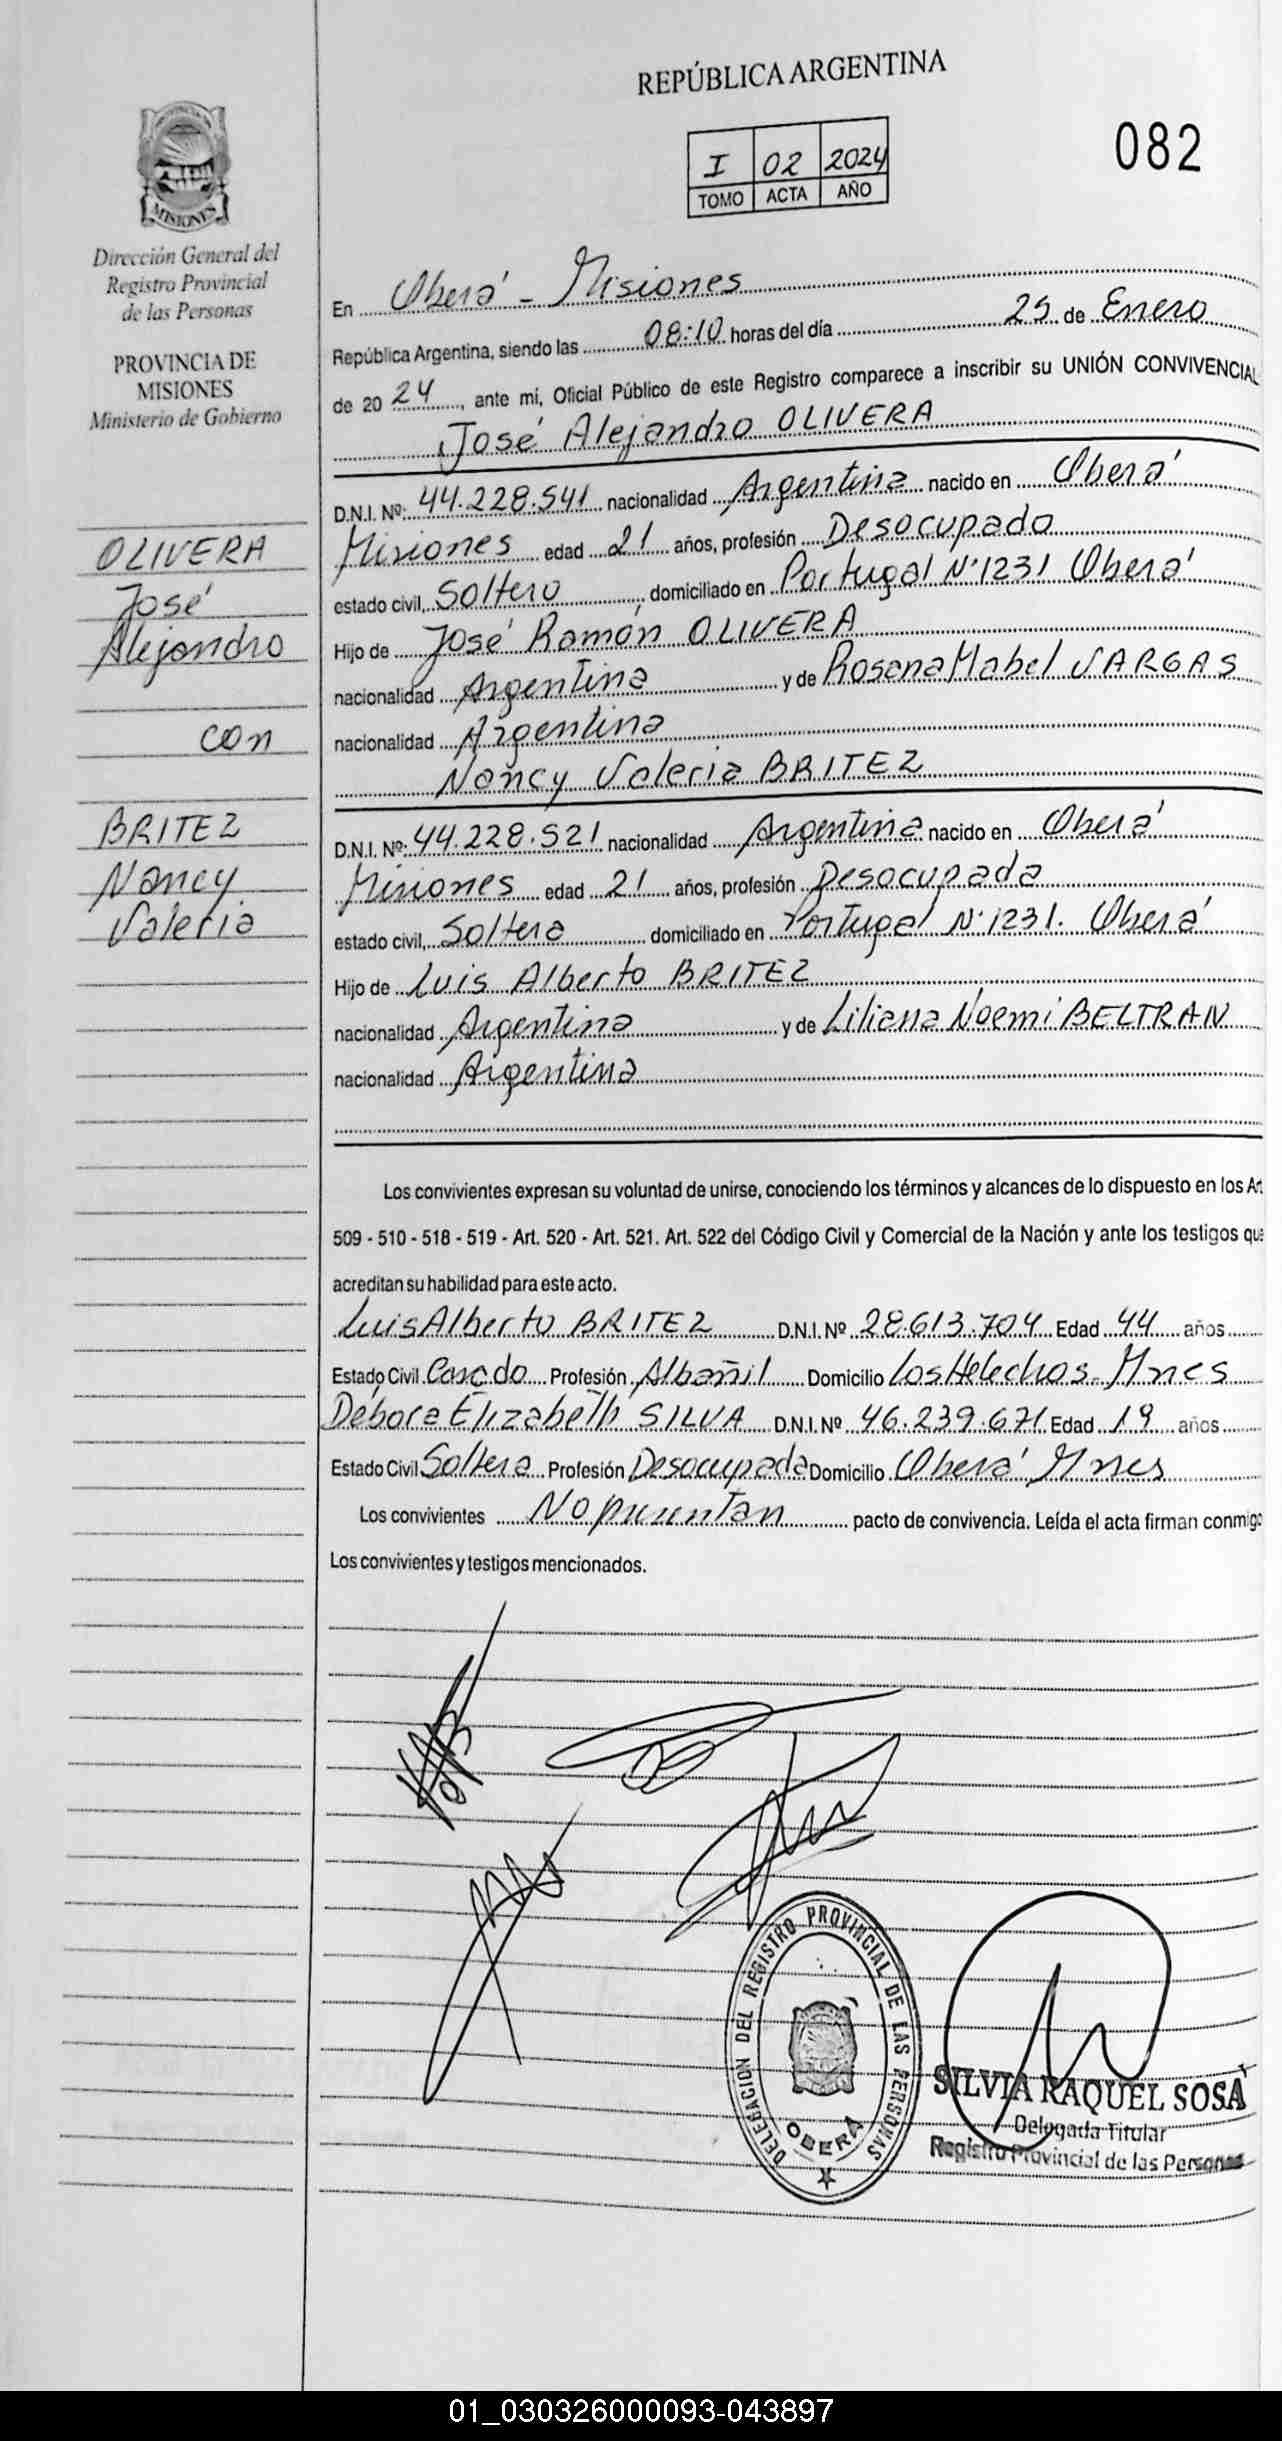 REPÚBLICA ARGENTINA
082
I 02 2024
TOMO ACTA AÑO
MISIONES
Dirección General del
Registro Provincial
de las Personas
PROVINCIA DE
MISIONES
Ministerio de Gobierno
En Oberá - Misiones
República Argentina, siendo las 08:10 horas del día 25 de Enero
de 2024, ante mi, Oficial Público de este Registro comparece a inscribir su UNIÓN CONVIVENCIAL
José Alejandro OLIVERA
D.N.I. Nº: 44.228.541 nacionalidad Argentina nacido en Oberá
Misiones edad 21 años, profesión Desocupado
estado civil, Soltero, domiciliado en Portugal Nº 1231 Oberá
Hijo de José Ramón OLIVERA
nacionalidad Argentina y de Rosana Mabel VARGAS
nacionalidad Argentina
Nancy Valeria BRITEZ
D.N.I. Nº: 44.228.521 nacionalidad Argentina nacido en Oberá
Misiones edad 21 años, profesión Desocupada
estado civil, Soltera domiciliado en Portugal Nº 1231. Oberá
Hijo de Luis Alberto BRITEZ
nacionalidad Argentina y de Liliana Noemí BELTRAN
nacionalidad Argentina
OLIVERA
José
Alejandro
con
BRITEZ
Nancy
Valeria
Los convivientes expresan su voluntad de unirse, conociendo los términos y alcances de lo dispuesto en los Art
509 - 510 - 518 - 519 - Art. 520 - Art. 521. Art. 522 del Código Civil y Comercial de la Nación y ante los testigos que
acreditan su habilidad para este acto.
Luis Alberto BRITEZ D.N.I. Nº 28.613.704 Edad 44 años
Estado Civil Casado Profesión Albañil Domicilio Los Helechos - Mnes
Debora Elizabeth SILVA D.N.I. Nº 46.239.671 Edad 19 años
Estado Civil Soltera Profesión Desocupada Domicilio Oberá Mnes
Los convivientes No presentan pacto de convivencia. Leída el acta firman conmigo
Los convivientes y testigos mencionados.
DELEGACION DEL REGISTRO PROVINCIAL DE LAS PERSONAS
OBERÁ
SILVIA RAQUEL SOSA
Delegada Titular
Registro Provincial de las Personas
01_030326000093-043897